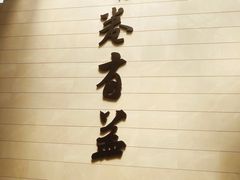 卷有益